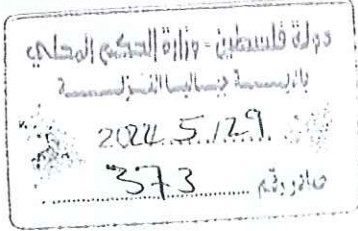 دولة فلسطين - وزارة الحكم المحلي
بلديــــة جباليا النزلــــة
5/29
صادر رقم 373